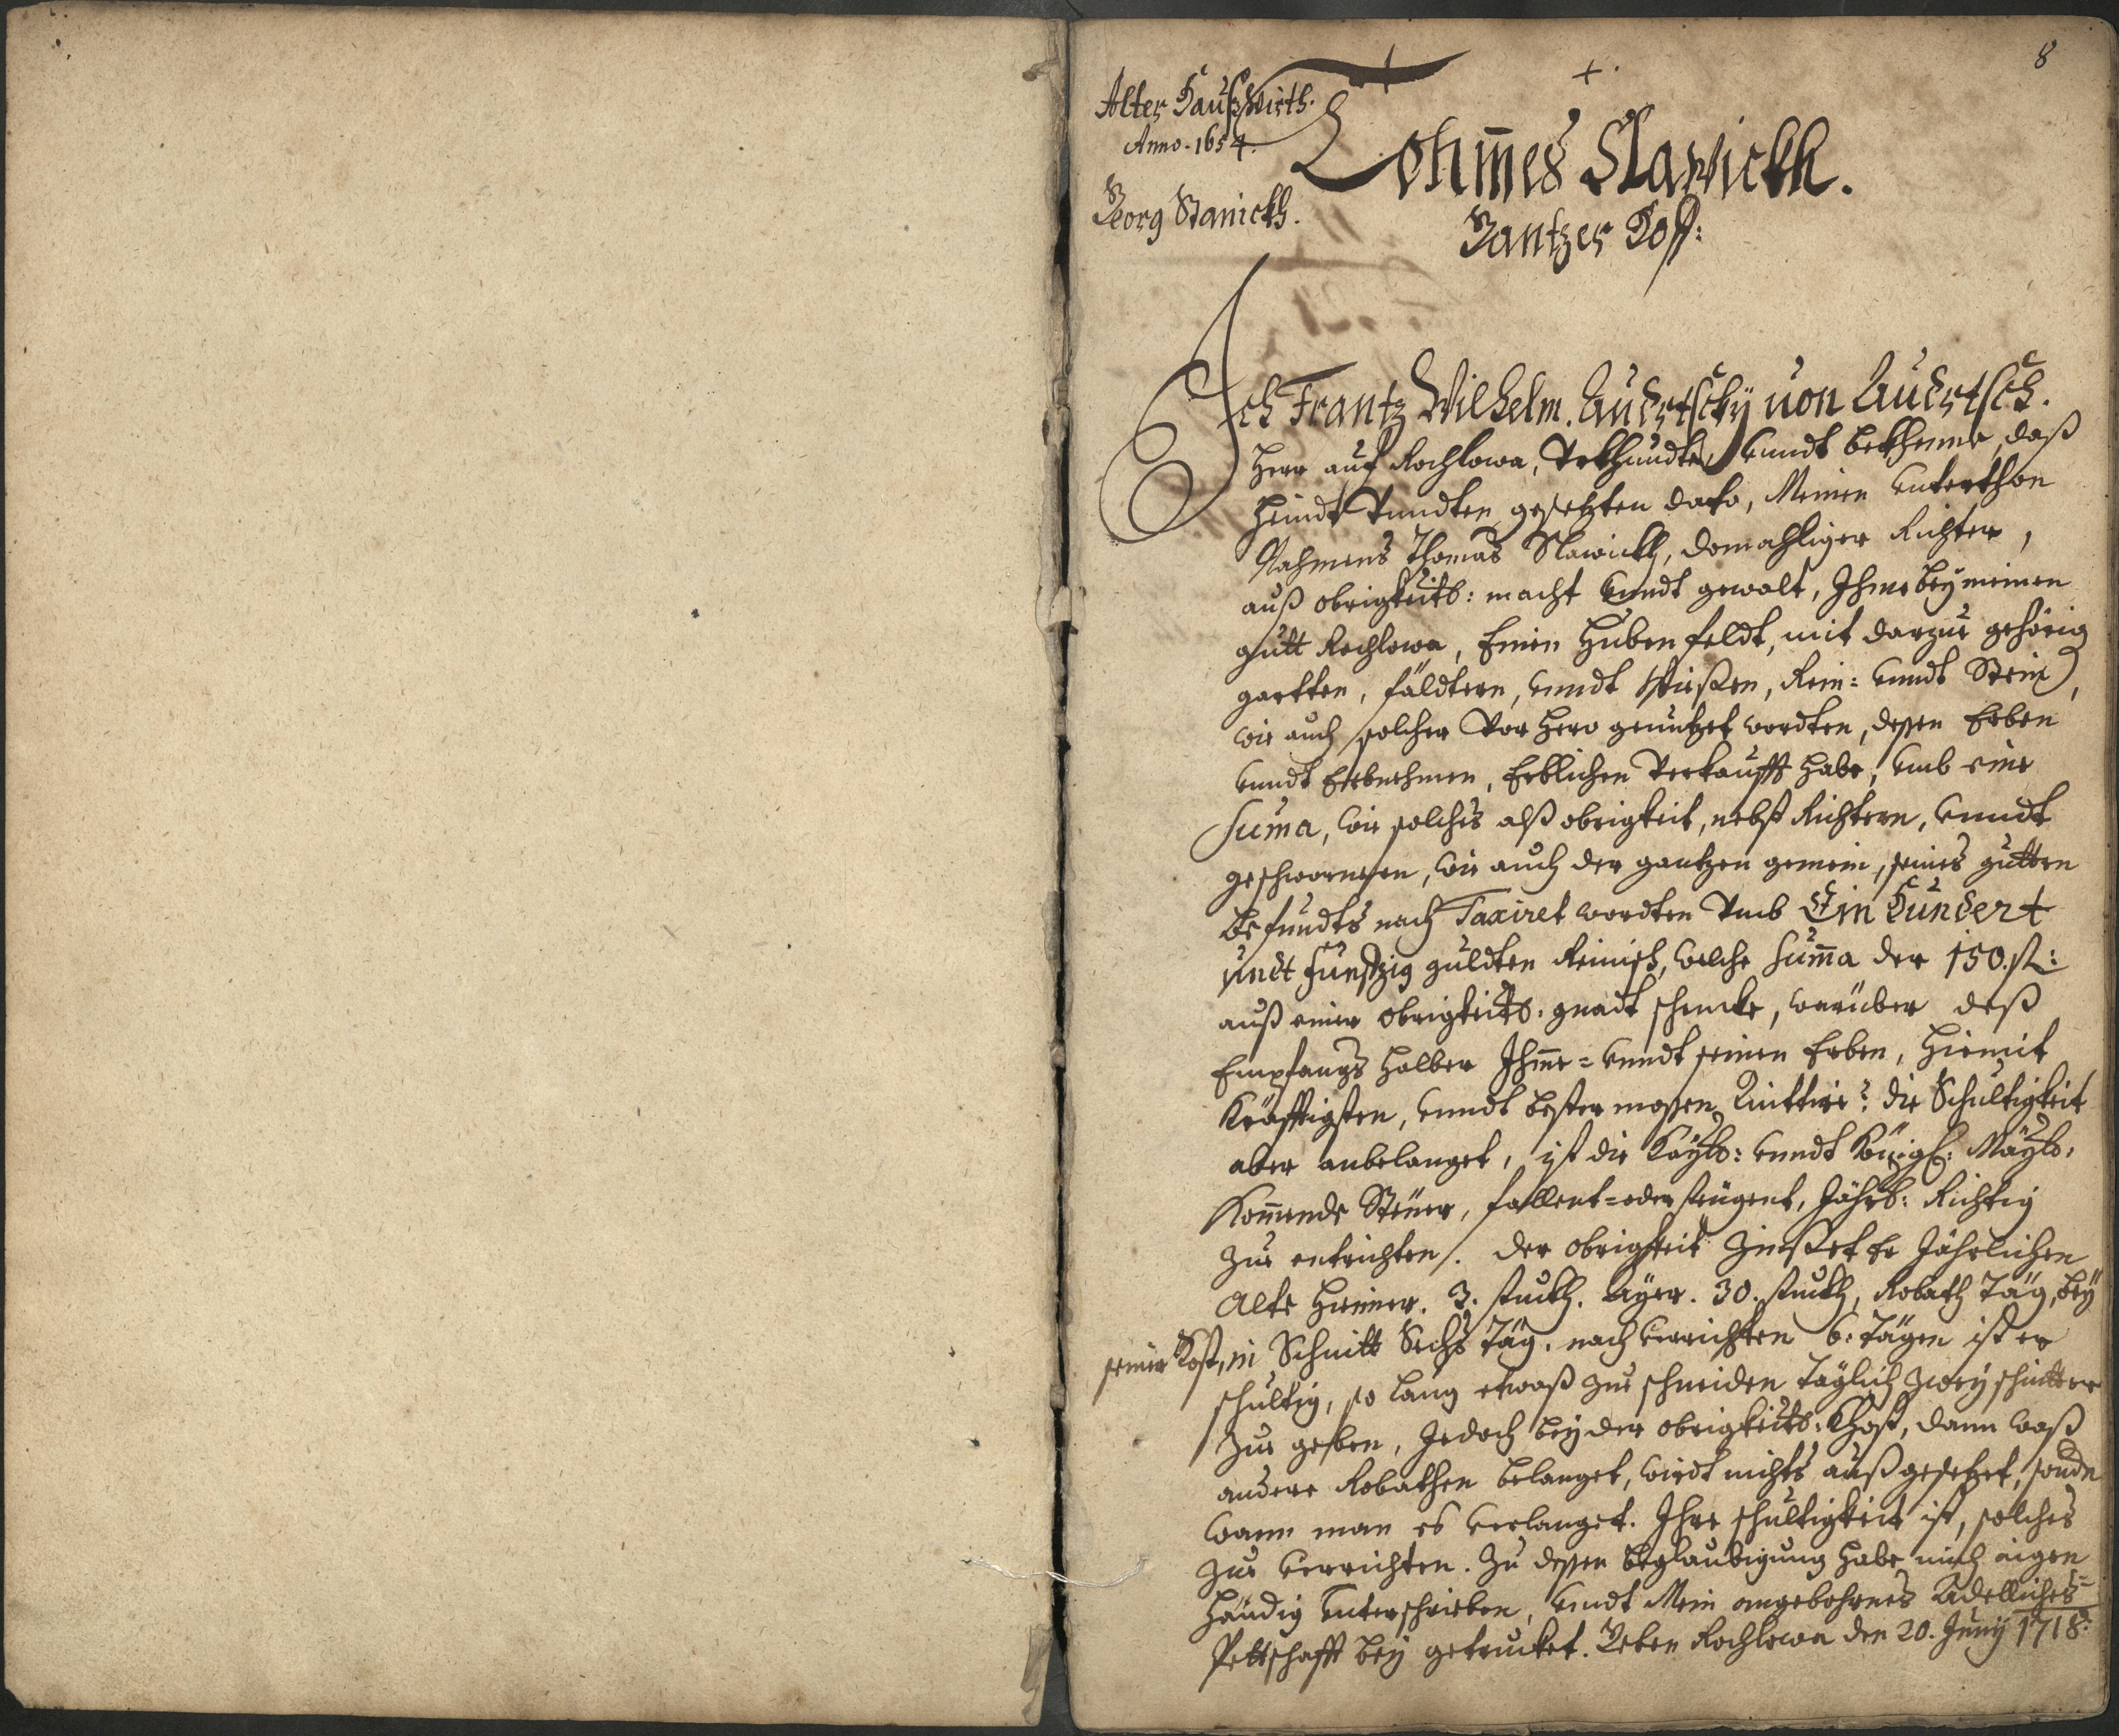 8
Alter Haußwirth.
Anno. 1654.
Georg Slanickh.
+.
Tohm̄es Slawickh.
Gantzer Hoff:
Ich Frantz Wilhelm. Audrtsckÿ von Audrtsch.
Herr auf Rochlowa, Vrkhundte, vnndt bekhenne, daß
heindt Vnndten gesetzten dato, Meinen vnterthon
Nahmens Thomas Slawickh, domahliger Richter,
auß obrigkeits: macht vnndt gewalt, Ihme beÿ meinen
gutt Rochlowa, Einen Huben feldt, mit darzue gehörig
gartten, fäldtern, vnndt Wießen, Rein= vnndt Stein,
wie auch solcher Vor hero genutzet wordten, deßen Erben
vnndt Erbnehmen, Erblichen Verkaufft habe, vmb eine
Suma, wie solches alß obrigkeit, nebst Richtern, vnndt
geschwornenen, wie auch der gantzen gemein, seines gutten
befundts nach Taxiret wordten Vmb Ein Hundert
undt Funfftzig guldten Reinisch, welche Sum̄a der 150. fl:
auß einer obrigkeits. gnadt schencke, warüber deß
Empfangs halber Ihme= vnndt seinen Erben, hiemit
Kräfftigsten, vnndt bester maßen Quittire: die Schultigkeit
aber anbelanget, ist die Kaÿls: vnndt Königl: Maÿls,
Kom̄ende Steuer, fallent= oder steigent, Jährl: Richtig
zue entrichten. der obrigkeit Zinßet Er Jährlichen
Alte Hienner. 3. stuckh. Aÿer. 30. stuckh, Robath Täg, beÿ
seiner Kost, in Schnitt Sechs Täg. nach verrichten 6. Tägen ist er
schultig, so lang etwaß zue schneiden Täglich zweÿ schnitter
zue geben, Jedoch beÿ der obrigkeits: Khost, dann waß
andere Robathen belanget, wirdt nichts außgesetzet, sonde
wann man es verlanget. Ihre schultigkeit ist, solches
zue verrichten. Zu deßen beglaubigung habe mich aigen
händig vnterschrieben, vnndt Mein angebohrnes Adelliches=
Pettschafft beÿ getrucket. Geben Rochlowa den 20. Junÿ 1718: